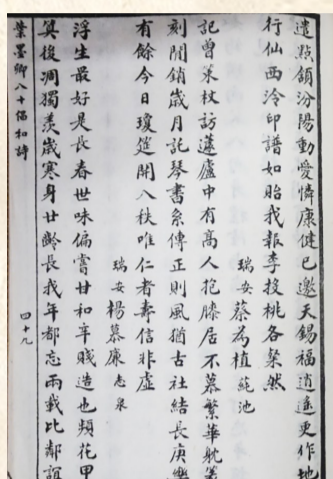 遣點頷汾陽動愛憐康健已邀天錫福逍遙更作地
行仙西泠印譜如貽我報李投桃各粲然
瑞安蔡為植蒓池
記曾策杖訪蘧廬中有高人抱膝居不慕繁華耽篆
刻閒銷歲月記琴書系傳正則風猶古社結長庚樂
有餘今日瓊筵開八秩唯仁者壽信非虛
瑞安楊慕廉志泉
浮生最好是長春世味偏嘗甘和辛賤造也頻花甲
算後凋獨羨歲寒身廿齡長我年都忘兩載比鄰誼
葉墨卿八十倡和詩
四十九